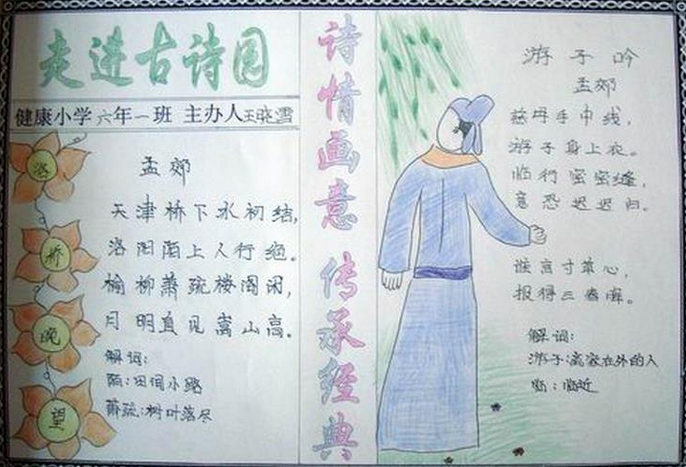 走进古诗园
健康小学六年一班 主办人王晓雪
洛
桥
晚
望
孟郊
天津桥下水初结,
洛阳陌上人行绝。
榆柳萧疏楼阁闲,
月明直见嵩山高。
解词:
陌:田间小路
萧疏:树叶落尽
诗情画意 传承经典
游子吟
孟郊
慈母手中线,
游子身上衣。
临行密密缝,
意恐迟迟归。
谁言寸草心,
报得三春晖。
解词:
游子:离家在外的人
临:临近